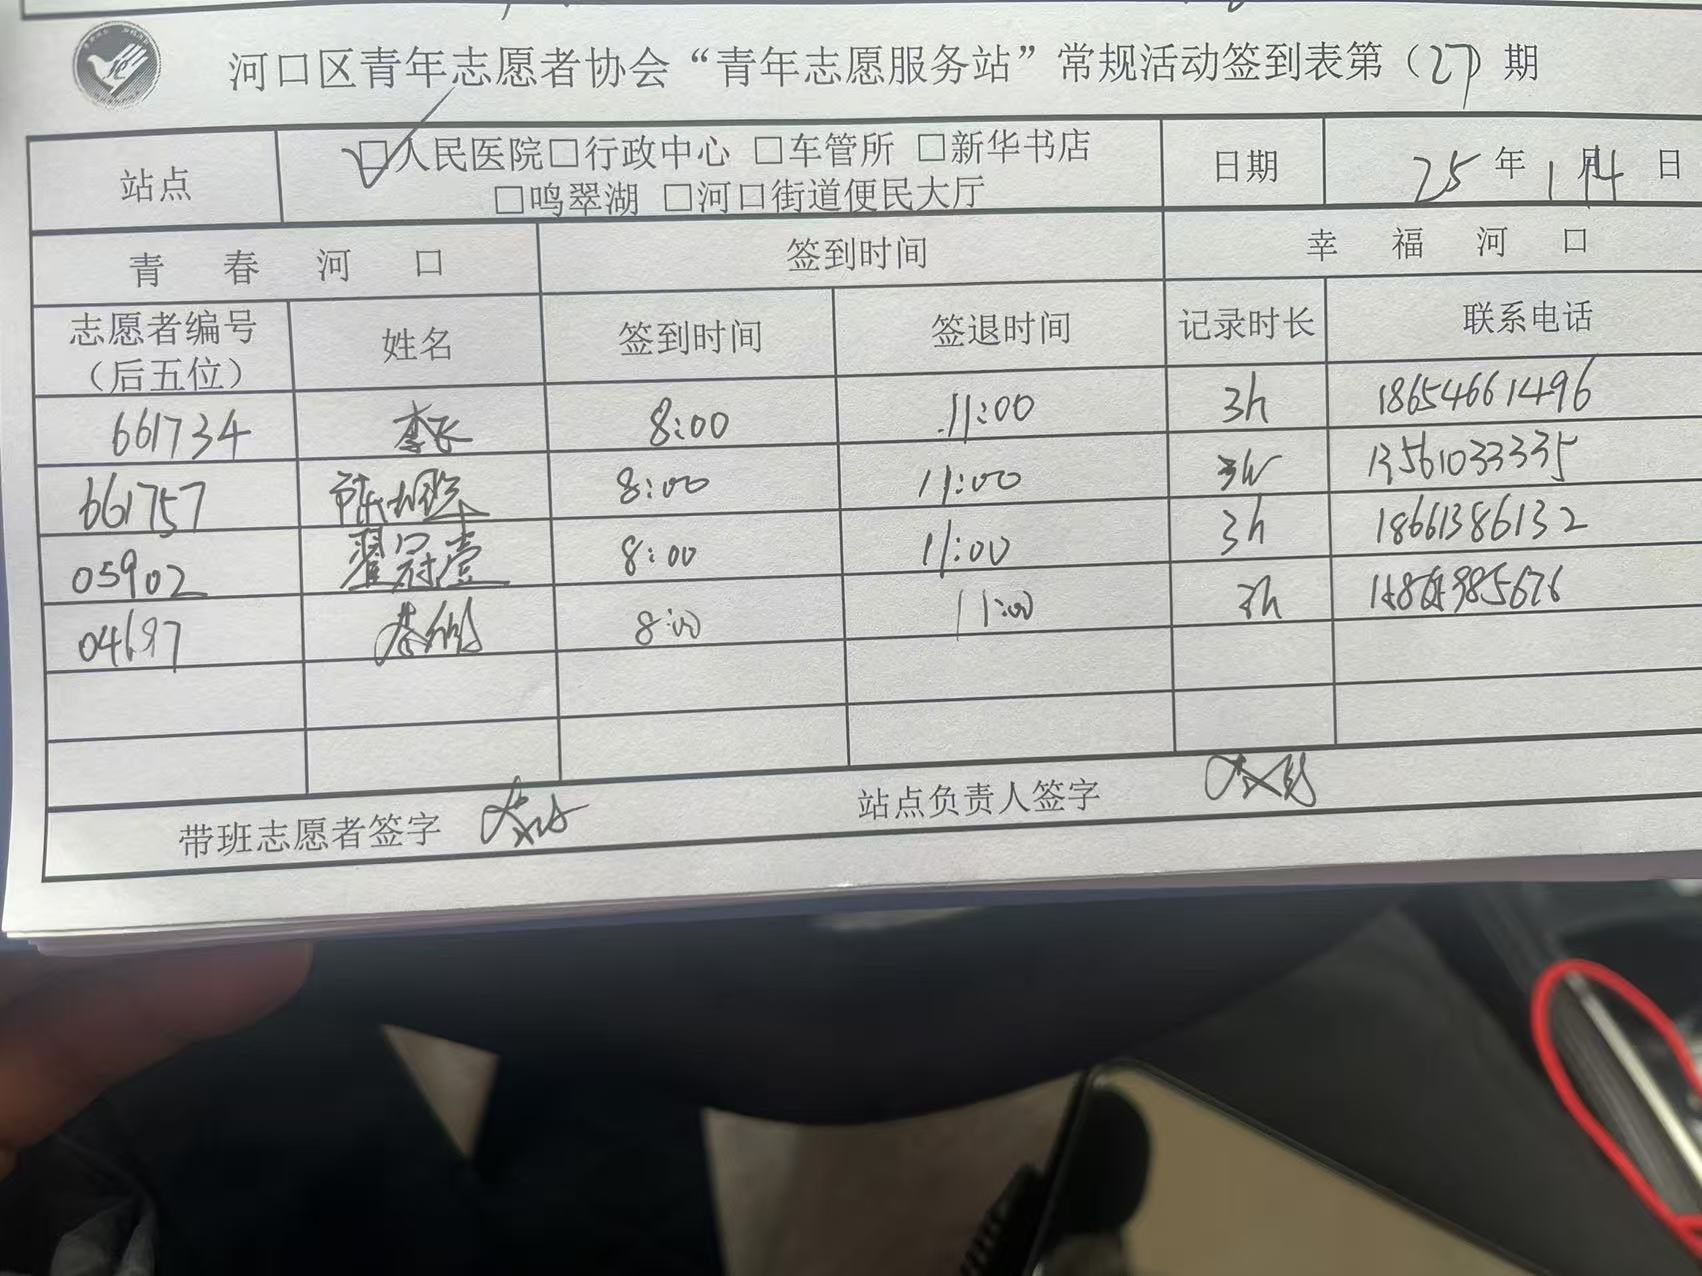 河口区青年志愿者协会“青年志愿服务站”常规活动签到表第（27）期
站点
□人民医院□行政中心 □车管所 □新华书店
□鸣翠湖 □河口街道便民大厅
日期
25年1月14日
青春河口 签到时间 幸福河口
志愿者编号
（后五位）
姓名 签到时间 签退时间 记录时长 联系电话
661734 李飞 8:00 11:00 3h 18654661496
661757 8:00 11:00 3h 13561033335
05902 翟冠壹 8:00 11:00 3h 18661386132
04697 8:00 11:00 3h
带班志愿者签字
站点负责人签字